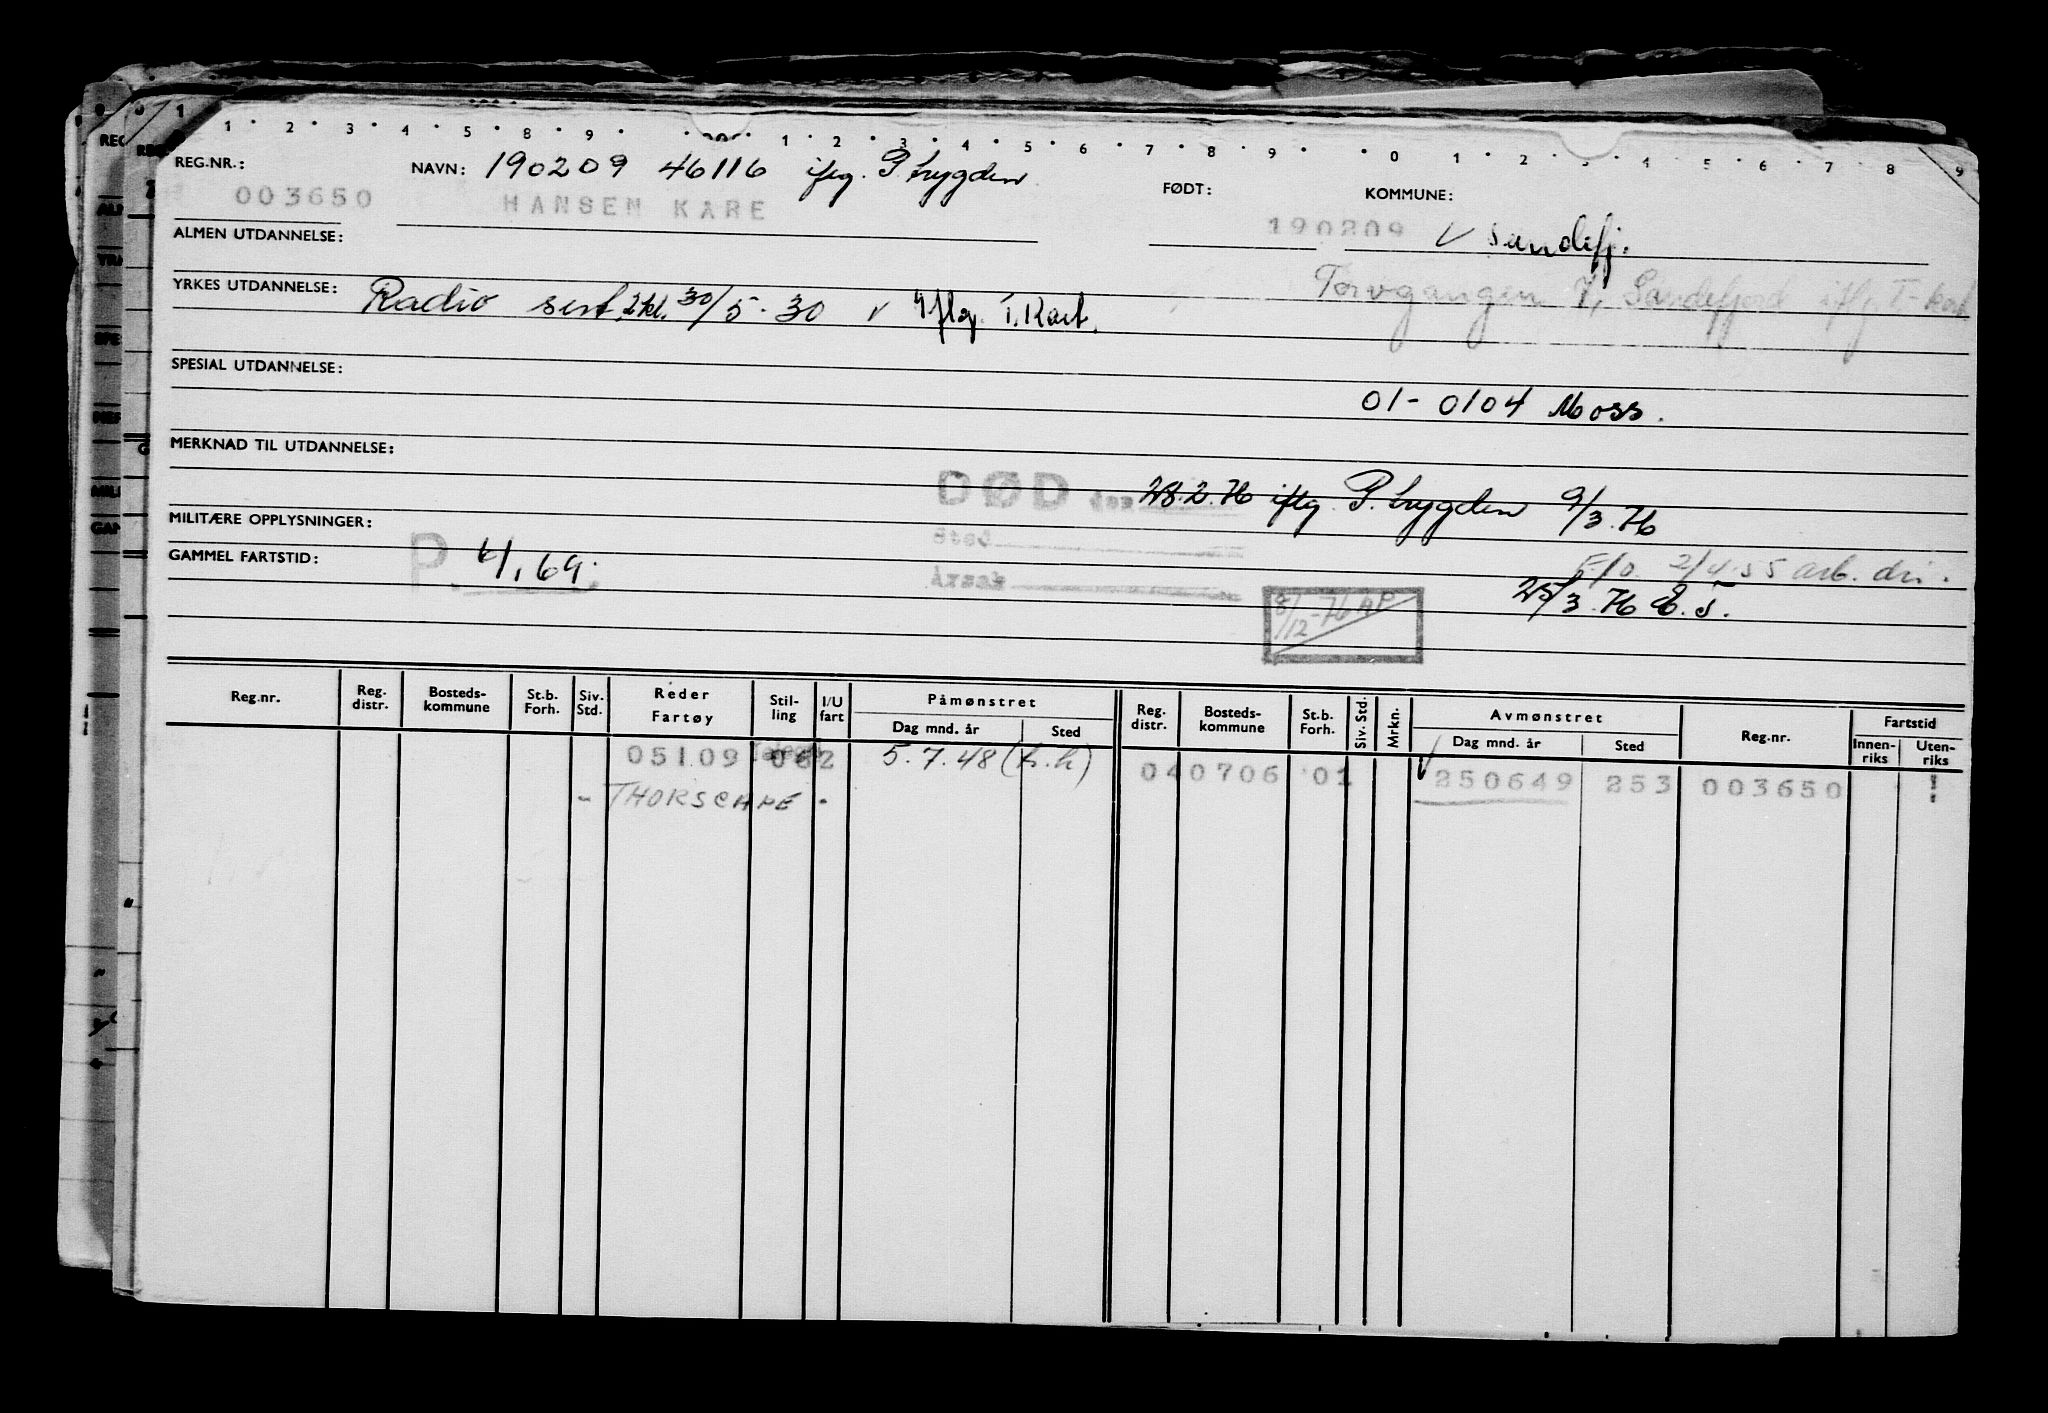 1 2 3 4 5 6 7 8 9 0 1 2 3 4 5 6 7 8 9
REG.NR.: NAVN: 190209 46116 iflg. P. trygden FØDT: KOMMUNE:
003650 HANSEN KARE 190209 V Sandefj.
ALMEN UTDANNELSE:
Torvgangen 7, Sandefjord iflg. T-kort
YRKES UTDANNELSE: Radio sert. 2kl. 30/5-30 v Iflg. T. Kort.
SPESIAL UTDANNELSE:
01-0104 Moss.
MERKNAD TIL UTDANNELSE:
DØD den 28.2.76 iflg. P. trygden 9/3.76
MILITÆRE OPPLYSNINGER:
Sted
GAMMEL FARTSTID: P. 4/69.
2/4-55 arb. dir.
Årsak
25/3.76
8/12-76 AP
Reg.nr. Reg. distr. Bosteds-kommune St.b. Forh. Siv. Std. Reder Fartøy Stil-ling I/U fart Påmønstret Dag mnd. år Sted Reg. distr. Bosteds-kommune St.b. Forh. Siv. Std. Mrkn. Avmønstret Dag mnd. år Sted Reg.nr. Fartstid Innen-riks Uten-riks
05109 062 5.7.48 (h.h) 040706 01 250649 253 003650
- THORSCAPE -